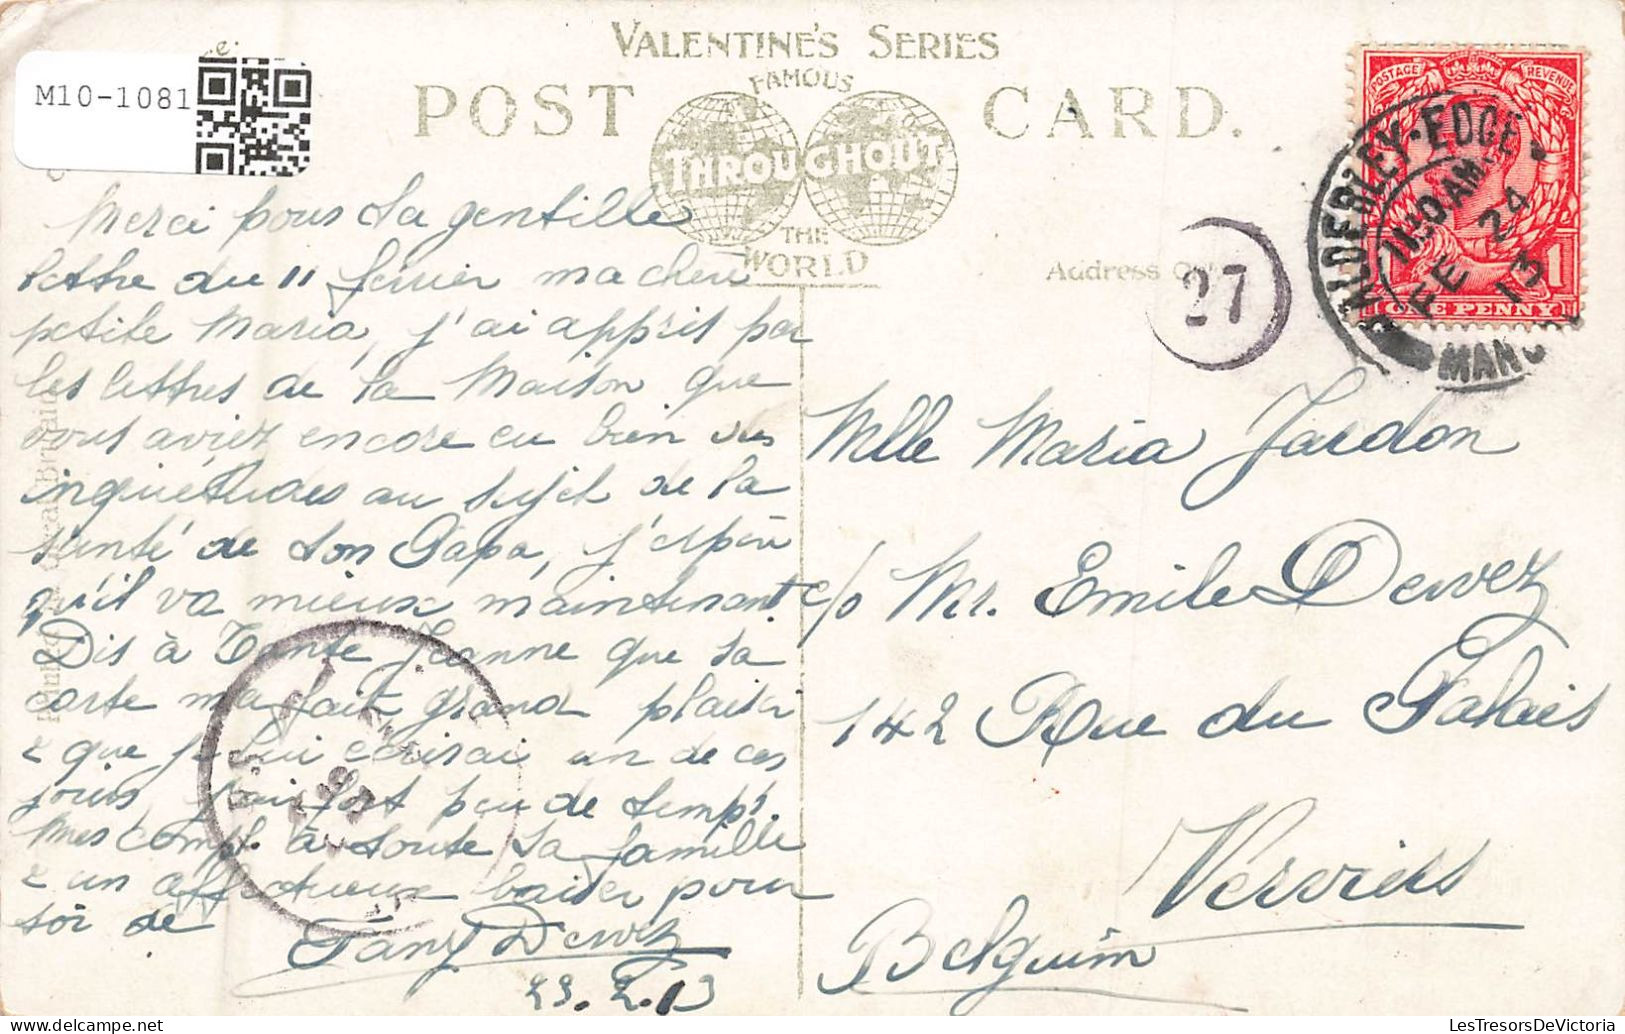 M10-1081
VALENTINE'S SERIES
POST CARD.
FAMOUS
THROUGHOUT
THE
WORLD
Address
27
POSTAGE REVENUE
ONE PENNY
1
ALDERLEY·EDGE
11:30 AM
FE 24
13
MANC
Merci pour ta gentille
lettre du 11 février ma chère
petite Maria, j'ai appris par
les lettres de la Maison que
vous aviez encore eu bien des
inquiétudes au sujet de la
santé de ton Papa, j'espère
qu'il va mieux maintenant
Dis à Tante Jeanne que sa
carte m'a fait grand plaisir
& que je lui écrirai un de ces
jours, j'ai fort peu de temps.
Mes compl. à toute ta famille
& un affectueux baiser pour
toi de
Fany Dewez
23.2.13
Mlle Maria Jardon
c/o Mr. Emile Dewez
142 Rue du Palais
Verviers
Belguim
LesTresorsDeVictoria